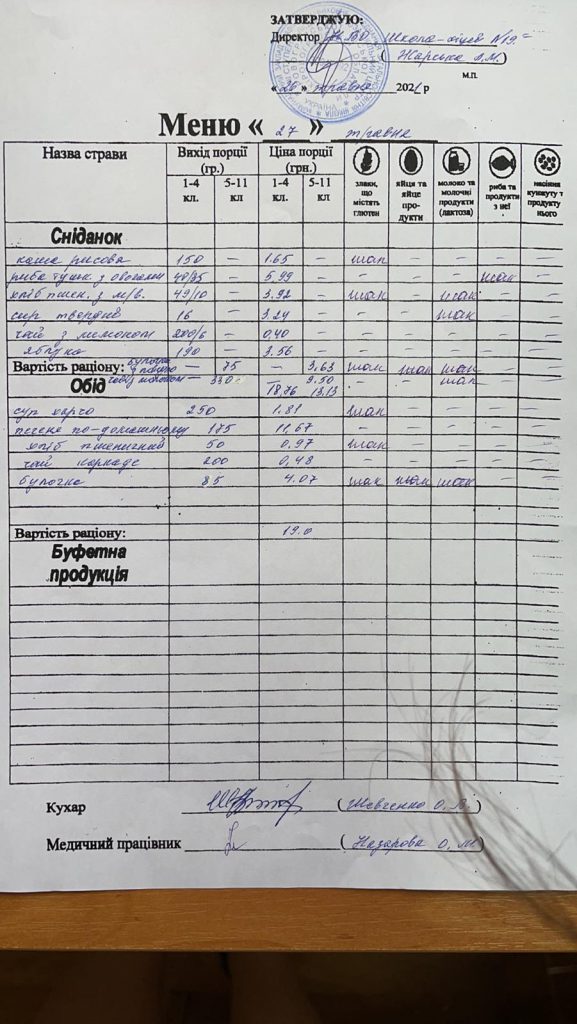 ЗАТВЕРДЖУЮ:
Директор Школа-ліцей №19
( Жарська Л.М. )
м.п.
« 26 » травня 2021 р
Меню « 27 » травня
Назва страви Вихід порції (гр.) Ціна порції (грн.) злаки, що містять глютен яйця та яйце продукти молоко та молочні продукти (лактоза) риба та продукти з неї насіння кунжуту т продукту нього
1-4 кл. 5-11 кл 1-4 кл. 5-11 кл
Сніданок
каша рисова 150 – 1.65 – шап – – – –
риба тушк. з овочами 48/35 – 5.99 – – – – шап –
хліб пшен. з м/в. 49/10 – 3.92 – шап – шап – –
сир твердий 16 – 3.24 – – – шап – –
чай з лимоном 200/6 – 0,40 – – – – – –
яблуко 190 – 3.56 – – – – – –
Вартість раціону: булочка – 75 – 3,63 шап шап шап – –
Обід – 330 – 9.50 – – шап – –
18,76 13,13
суп харчо 250 1.81 шап – – – –
печеня по-домашньому 175 11,67 – – – – –
хліб пшеничний 50 0,97 шап – – – –
чай каркаде 200 0,48 – – – – –
булочка 85 4.07 шап шап шап – –
Вартість раціону: 19.0
Буфетна
продукція
Кухар ( Шевченко О.В. )
Медичний працівник ( Назарова О.М. )